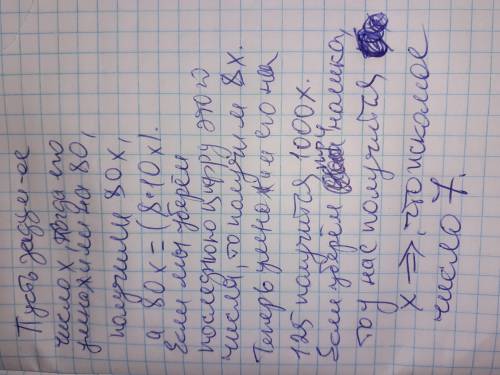 Пусть задум-ое
число x тогда его
умножили на 80,
получили 80x,
а 80x = (8·10x).
Если мы уберём
последнюю цифру этого
числа, то получим 8x.
Теперь умножим его на
125 получится 1000x.
Если уберём три нолика,
то у нас получится
x ⇒, что искомое
число 7.